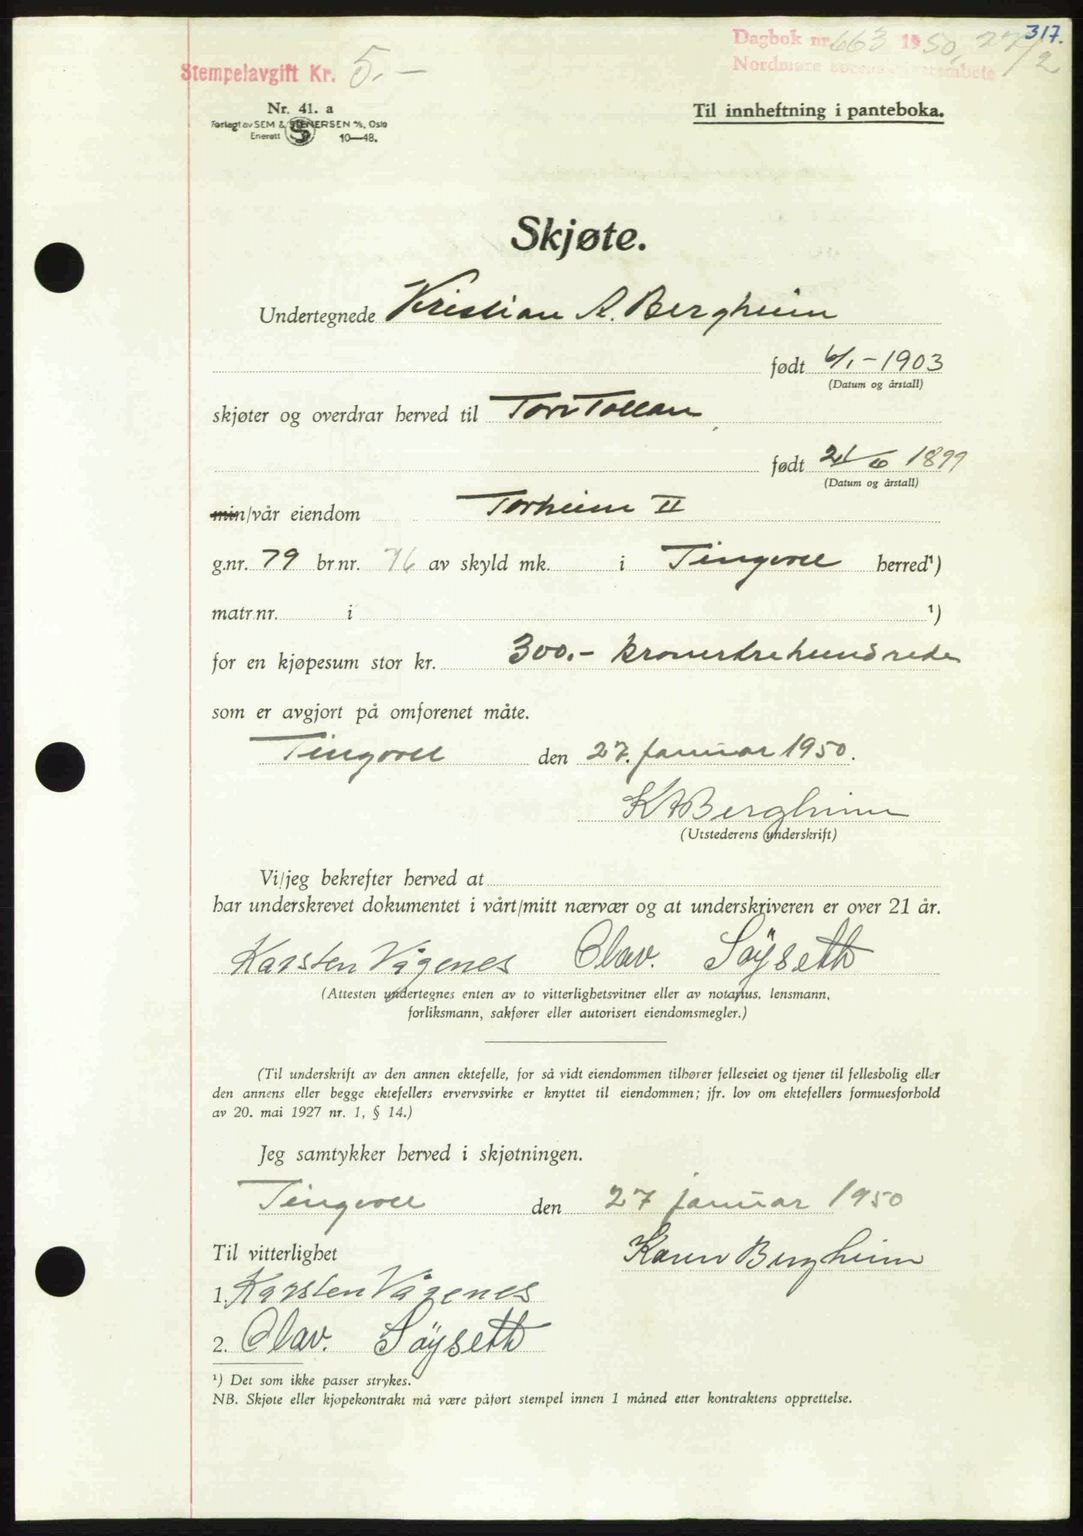 317.
Dagbok nr. 663 1950, 27/2
Nordmøre sorenskriverembete
Stempelavgift Kr. 5.-
Nr. 41. a
Forlagt av SEM & STENERSEN A/S, Oslo
Enerett 10-48.
Til innheftning i panteboka.
Skjøte.
Undertegnede Kristian A. Bergheim
født 6/1-1903
(Datum og årstall)
skjøter og overdrar herved til Tore Tollan
født 21/6 1899
(Datum og årstall)
min/vår eiendom Torheim II
g.nr. 79 br.nr. 76 av skyld mk. i Tingvoll herred¹)
matr.nr. i ¹)
for en kjøpesum stor kr. 300.- kronertrehundrede
som er avgjort på omforenet måte.
Tingvoll den 27. januar 1950.
K A Bergheim
(Utstederens underskrift)
Vi/jeg bekrefter herved at
har underskrevet dokumentet i vårt/mitt nærvær og at underskriveren er over 21 år.
Karsten Vågenes Olav. Söyseth
(Attesten undertegnes enten av to vitterlighetsvitner eller av notarius, lensmann,
forliksmann, sakfører eller autorisert eiendomsmegler.)
(Til underskrift av den annen ektefelle, for så vidt eiendommen tilhører felleseiet og tjener til fellesbolig eller
den annens eller begge ektefellers ervervsvirke er knyttet til eiendommen; jfr. lov om ektefellers formuesforhold
av 20. mai 1927 nr. 1, § 14.)
Jeg samtykker herved i skjøtningen.
Tingvoll den 27 januar 1950
Til vitterlighet Karen Bergheim
1. Karsten Vågenes
2. Olav. Söyseth
¹) Det som ikke passer strykes.
NB. Skjøte eller kjøpekontrakt må være påført stempel innen 1 måned etter kontraktens opprettelse.